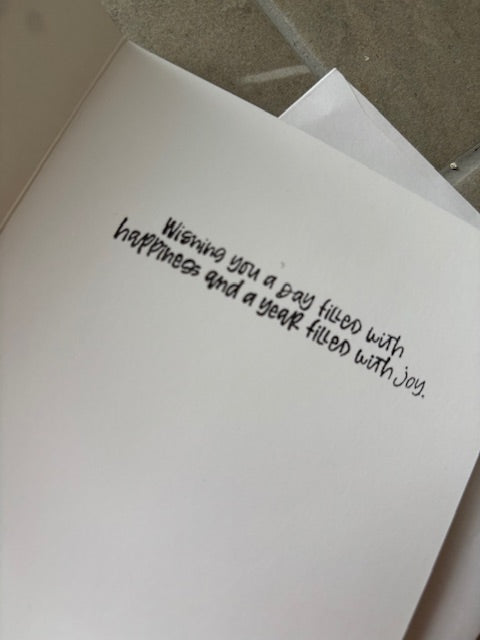 Wishing you a Day filled with
happiness and a year filled with joy.